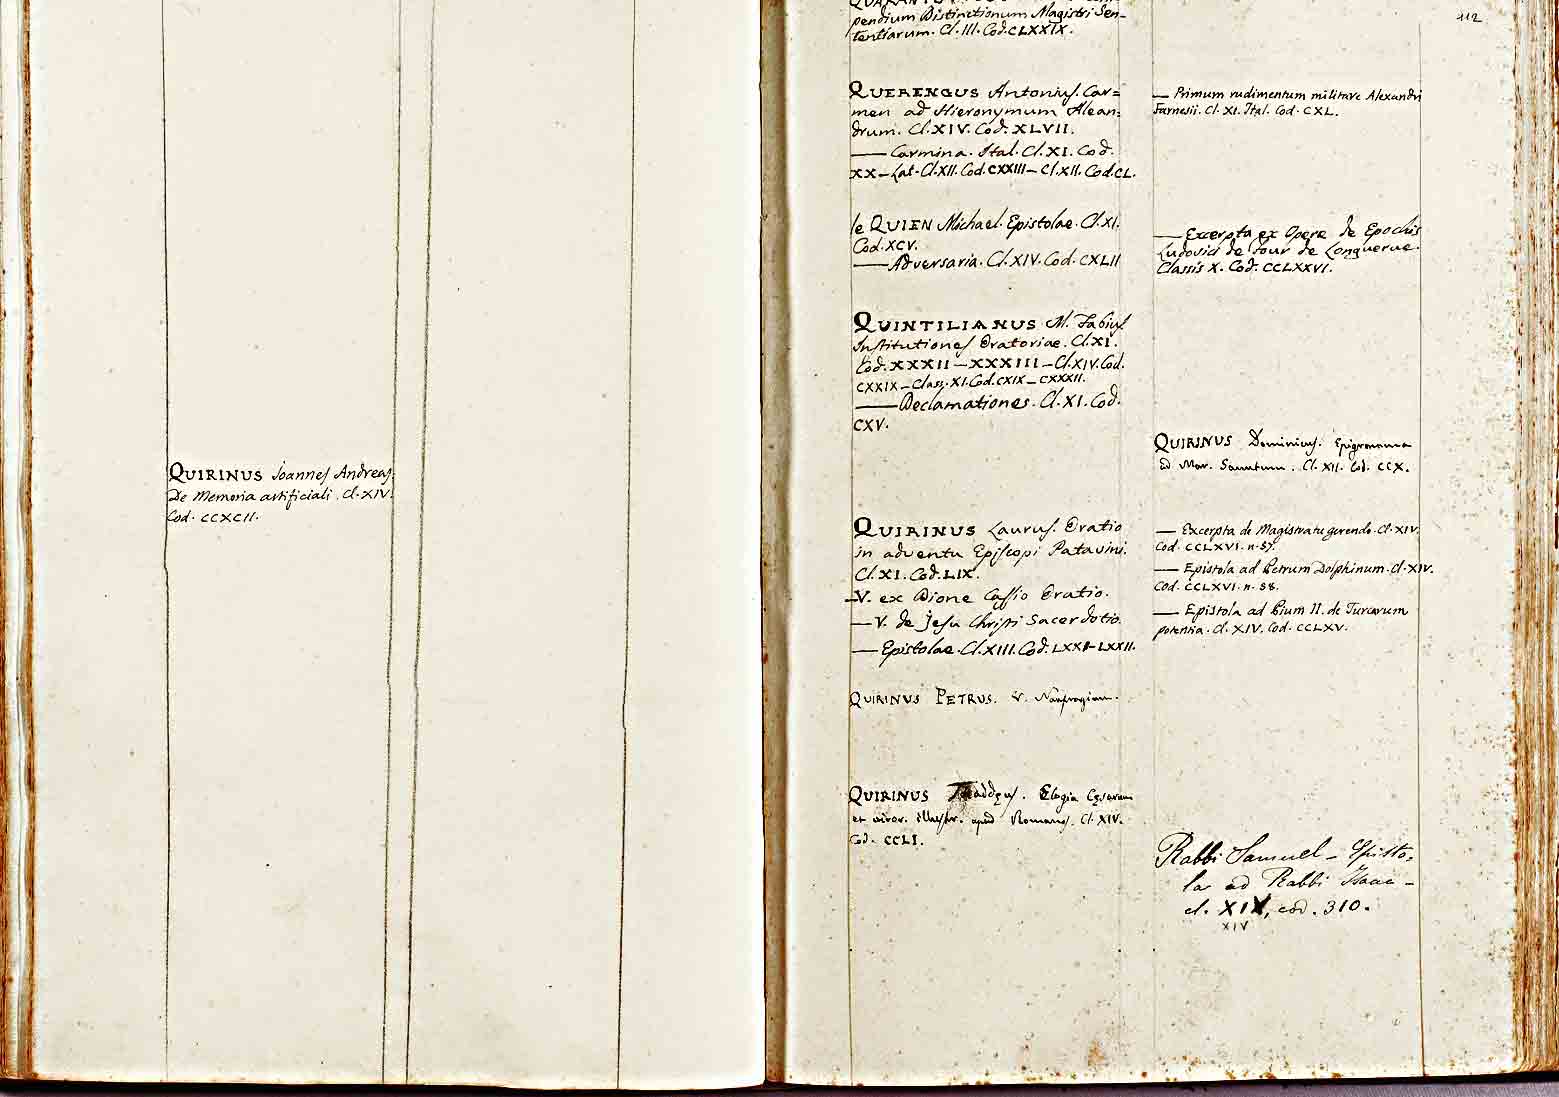 QUIRINUS Joannes Andreas.
De Memoria artificiali. Cl. XIV.
Cod. CCXCII.
112
pendium Distinctionum Magistri Sen-
tentiarum. Cl. III. Cod. CLXXIX.
QUERENGUS Antonius. Car=
men ad Hieronymum Alean=
drum. Cl. XIV. Cod. XLVII.
— Carmina. Ital. Cl. XI. Cod.
XX — Lat. Cl. XII. Cod. CXXIII — Cl. XII. Cod. CL.
le QUIEN Michael. Epistolae. Cl. XI.
Cod. XCV.
— Adversaria. Cl. XIV. Cod. CXLII
QUINTILIANUS M. Fabius
Institutiones Oratoriae. Cl. XI.
Cod. XXXII — XXXIII — Cl. XIV. Cod.
CXXIX — Class. XI. Cod. CXIX — CXXXII.
— Declamationes. Cl. XI. Cod.
CXV.
QUIRINUS Laurus. Oratio
in adventu Episcopi Patavini.
Cl. XI. Cod. LIX.
— V. ex Dione Cassio Oratio.
— V. de Jesu Christi Sacerdotio.
— Epistolae. Cl. XIII. Cod. LXXI–LXXII.
QUIRINUS PETRUS. V. Naufragium.
QUIRINUS Thaddęus. Elogia Cęsarum
et viror. illustr. apud Romanos. Cl. XIV.
Cod. CCLI.
— Primum rudimentum militare Alexandri
Farnesii. Cl. XI. Ital. Cod. CXL.
— Excerpta ex Opere de Epochis
Ludovici de Four de Longuerue.
Classis X. Cod. CCLXXVI.
QUIRINUS Dominicus. Epigramma
ad Mar. Sanutum. Cl. XII. Cod. CCX.
— Excerpta de Magistratu gerendo. Cl. XIV.
Cod. CCLXVI. n. 57.
— Epistola ad Petrum Dolphinum. Cl. XIV.
Cod. CCLXVI. n. 58.
— Epistola ad Pium II. de Turcarum
potentia. Cl. XIV. Cod. CCLXV.
Rabbi Samuel — Episto-
la ad Rabbi Isaac —
cl. XIV, cod. 310.
XIV